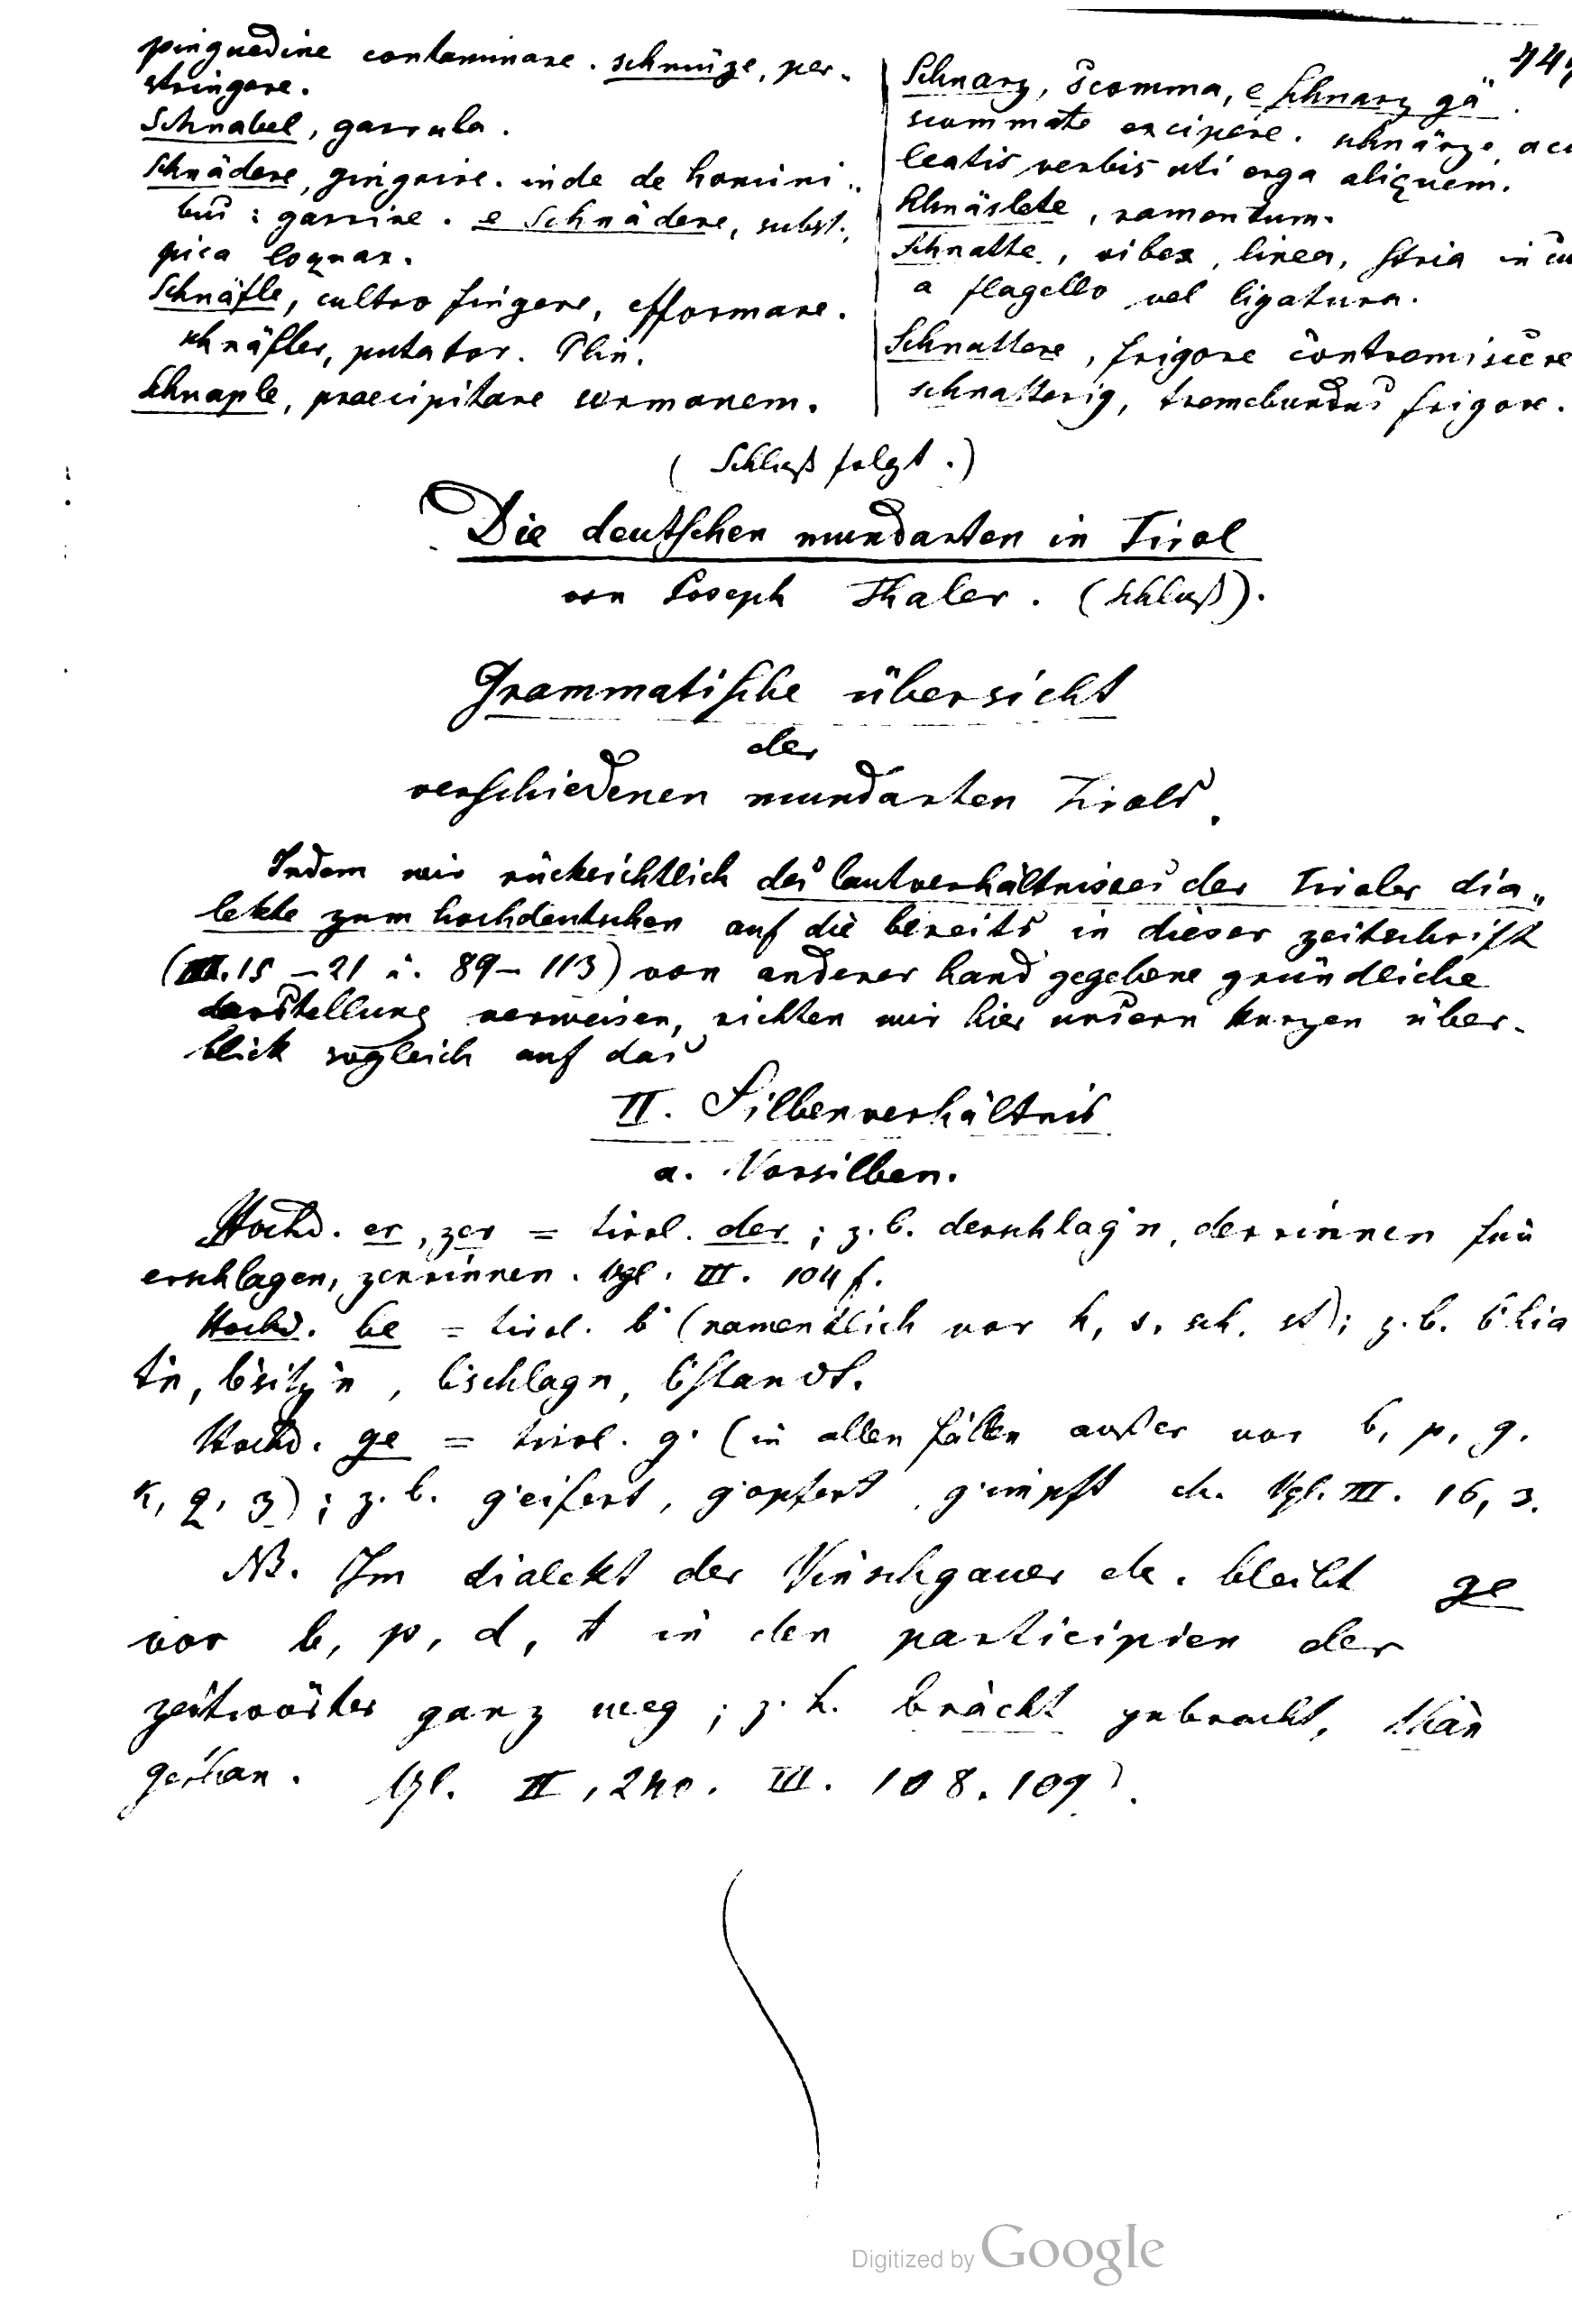 pinguedine contaminare. schmüze, per-
stringere.
Schnabel, garrula.
Schnädere, gingrire. inde de homini„
bus: garrire. e Schnädere, subst.,
pica loquax.
Schnäfle, cultro fingere, efformare.
schnäfler, putator. Plin.
Schnaple, praecipitare sermonem.
Schnarz, scomma, e schnarz gä
scommate excipere. schnärze, acu
leatis verbis uti erga aliquem.
Schnäslete, ramentum.
Schnatte, vibex, linea, stria in cu
a flagello vel ligatura.
Schnattere, frigore contremiscere
schnatterig, tremebundus frigore.
(Schluß folgt.)
Die deutschen mundarten in Tirol
von Joseph Thaler. (schluß).
Grammatische übersicht
der
verschiedenen mundarten Tirols.
Indem wir rücksichtlich des lautverhältnisses der Tiroler dia„
lekte zum hochdeutschen auf die bereits in dieser zeitschrift
(III. 15 – 21 u. 89 – 113) von anderer hand gegebene gründliche
darstellung verweisen, richten wir hier unsern kurzen über-
blick sogleich auf das
II. Silbenverhältnis
a. Vorsilben.
Hochd. er, zer = tirol. der; z. b. derschlag'n, derrinnen für
erschlagen, zerrinnen. Vgl. III. 104 f.
Hochd. be = tirol. b' (namentlich vor h, s, sch, st); z. b. b'hia
t'n, b'sitz'n, b'schlagn, b'standt.
Hochd. ge = tirol. g' (in allen fällen außer vor b, p, g,
k, q, z); z. b. g'eifert, g'opfert, g'impft etc. Vgl. III. 16, 3.
NB. Im dialekt der Vinschgauer etc. bleibt ge
vor b, p, d, t in den participien der
zeitwörter ganz weg; z. b. bràcht gebracht, thàn
gethan. Vgl. II, 240. III. 108. 109).
Digitized by Google